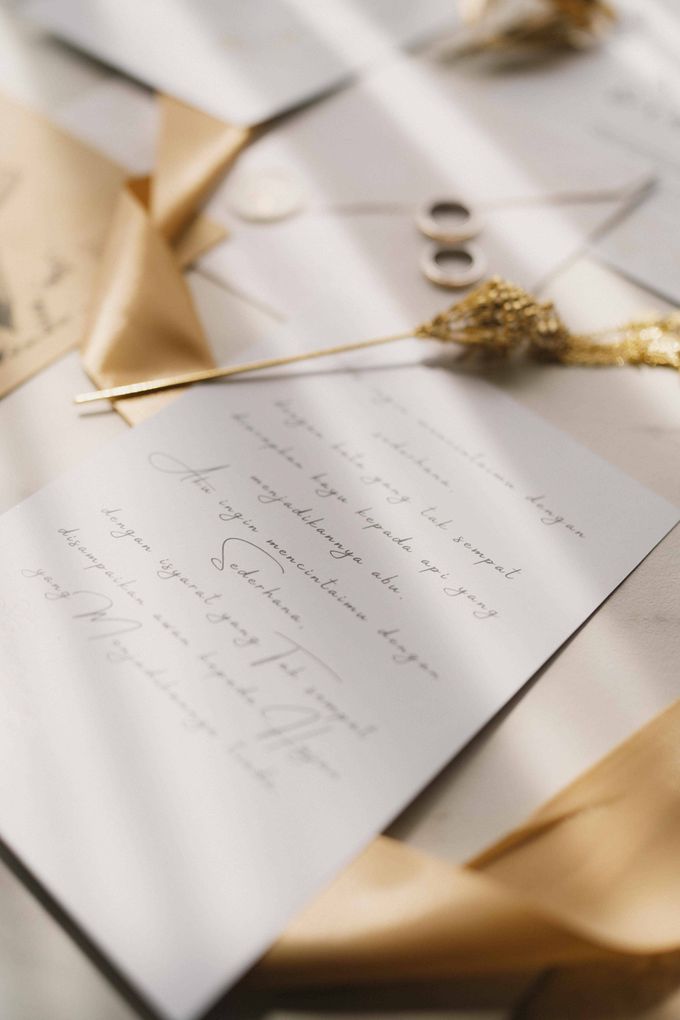 ingin mencintaimu dengan
sederhana.
dengan kata yang tak sempat
diucapkan kayu kepada api yang
menjadikannya abu.
Aku ingin mencintaimu dengan
Sederhana.
dengan isyarat yang Tak sempat
disampaikan awan kepada Hujan
yang Menjadikannya tiada